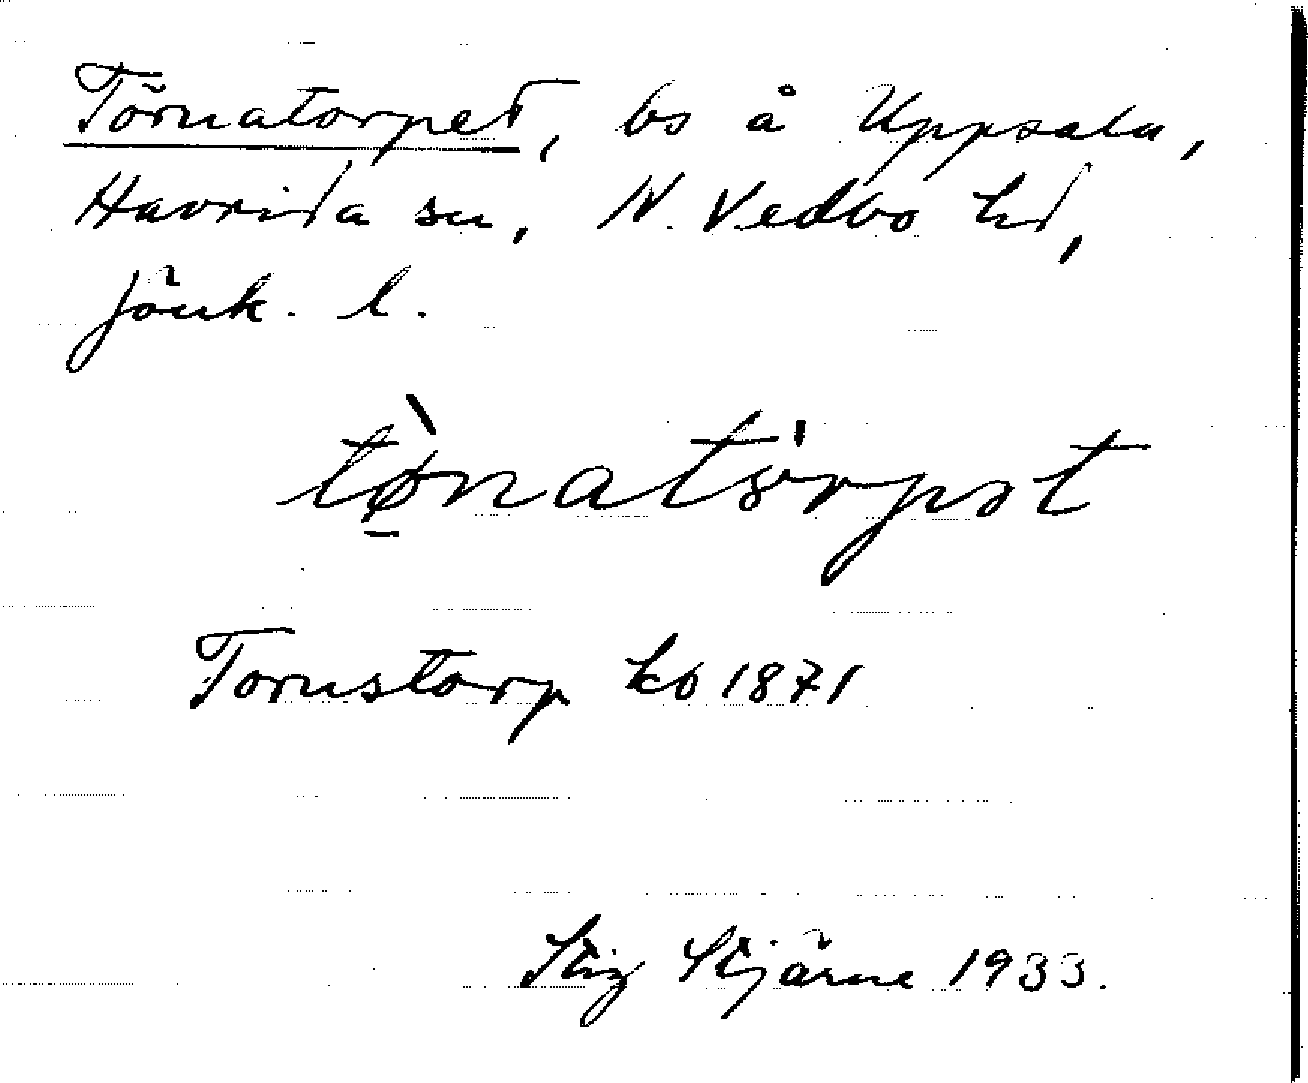 Törnatorpet, bs å Uppsala,
Haurida sn, N. Vedbo hd,
Jönk. l.
tø̠̀natörpət
Tornstorp ko 1871
Stig Stjärne 1933.